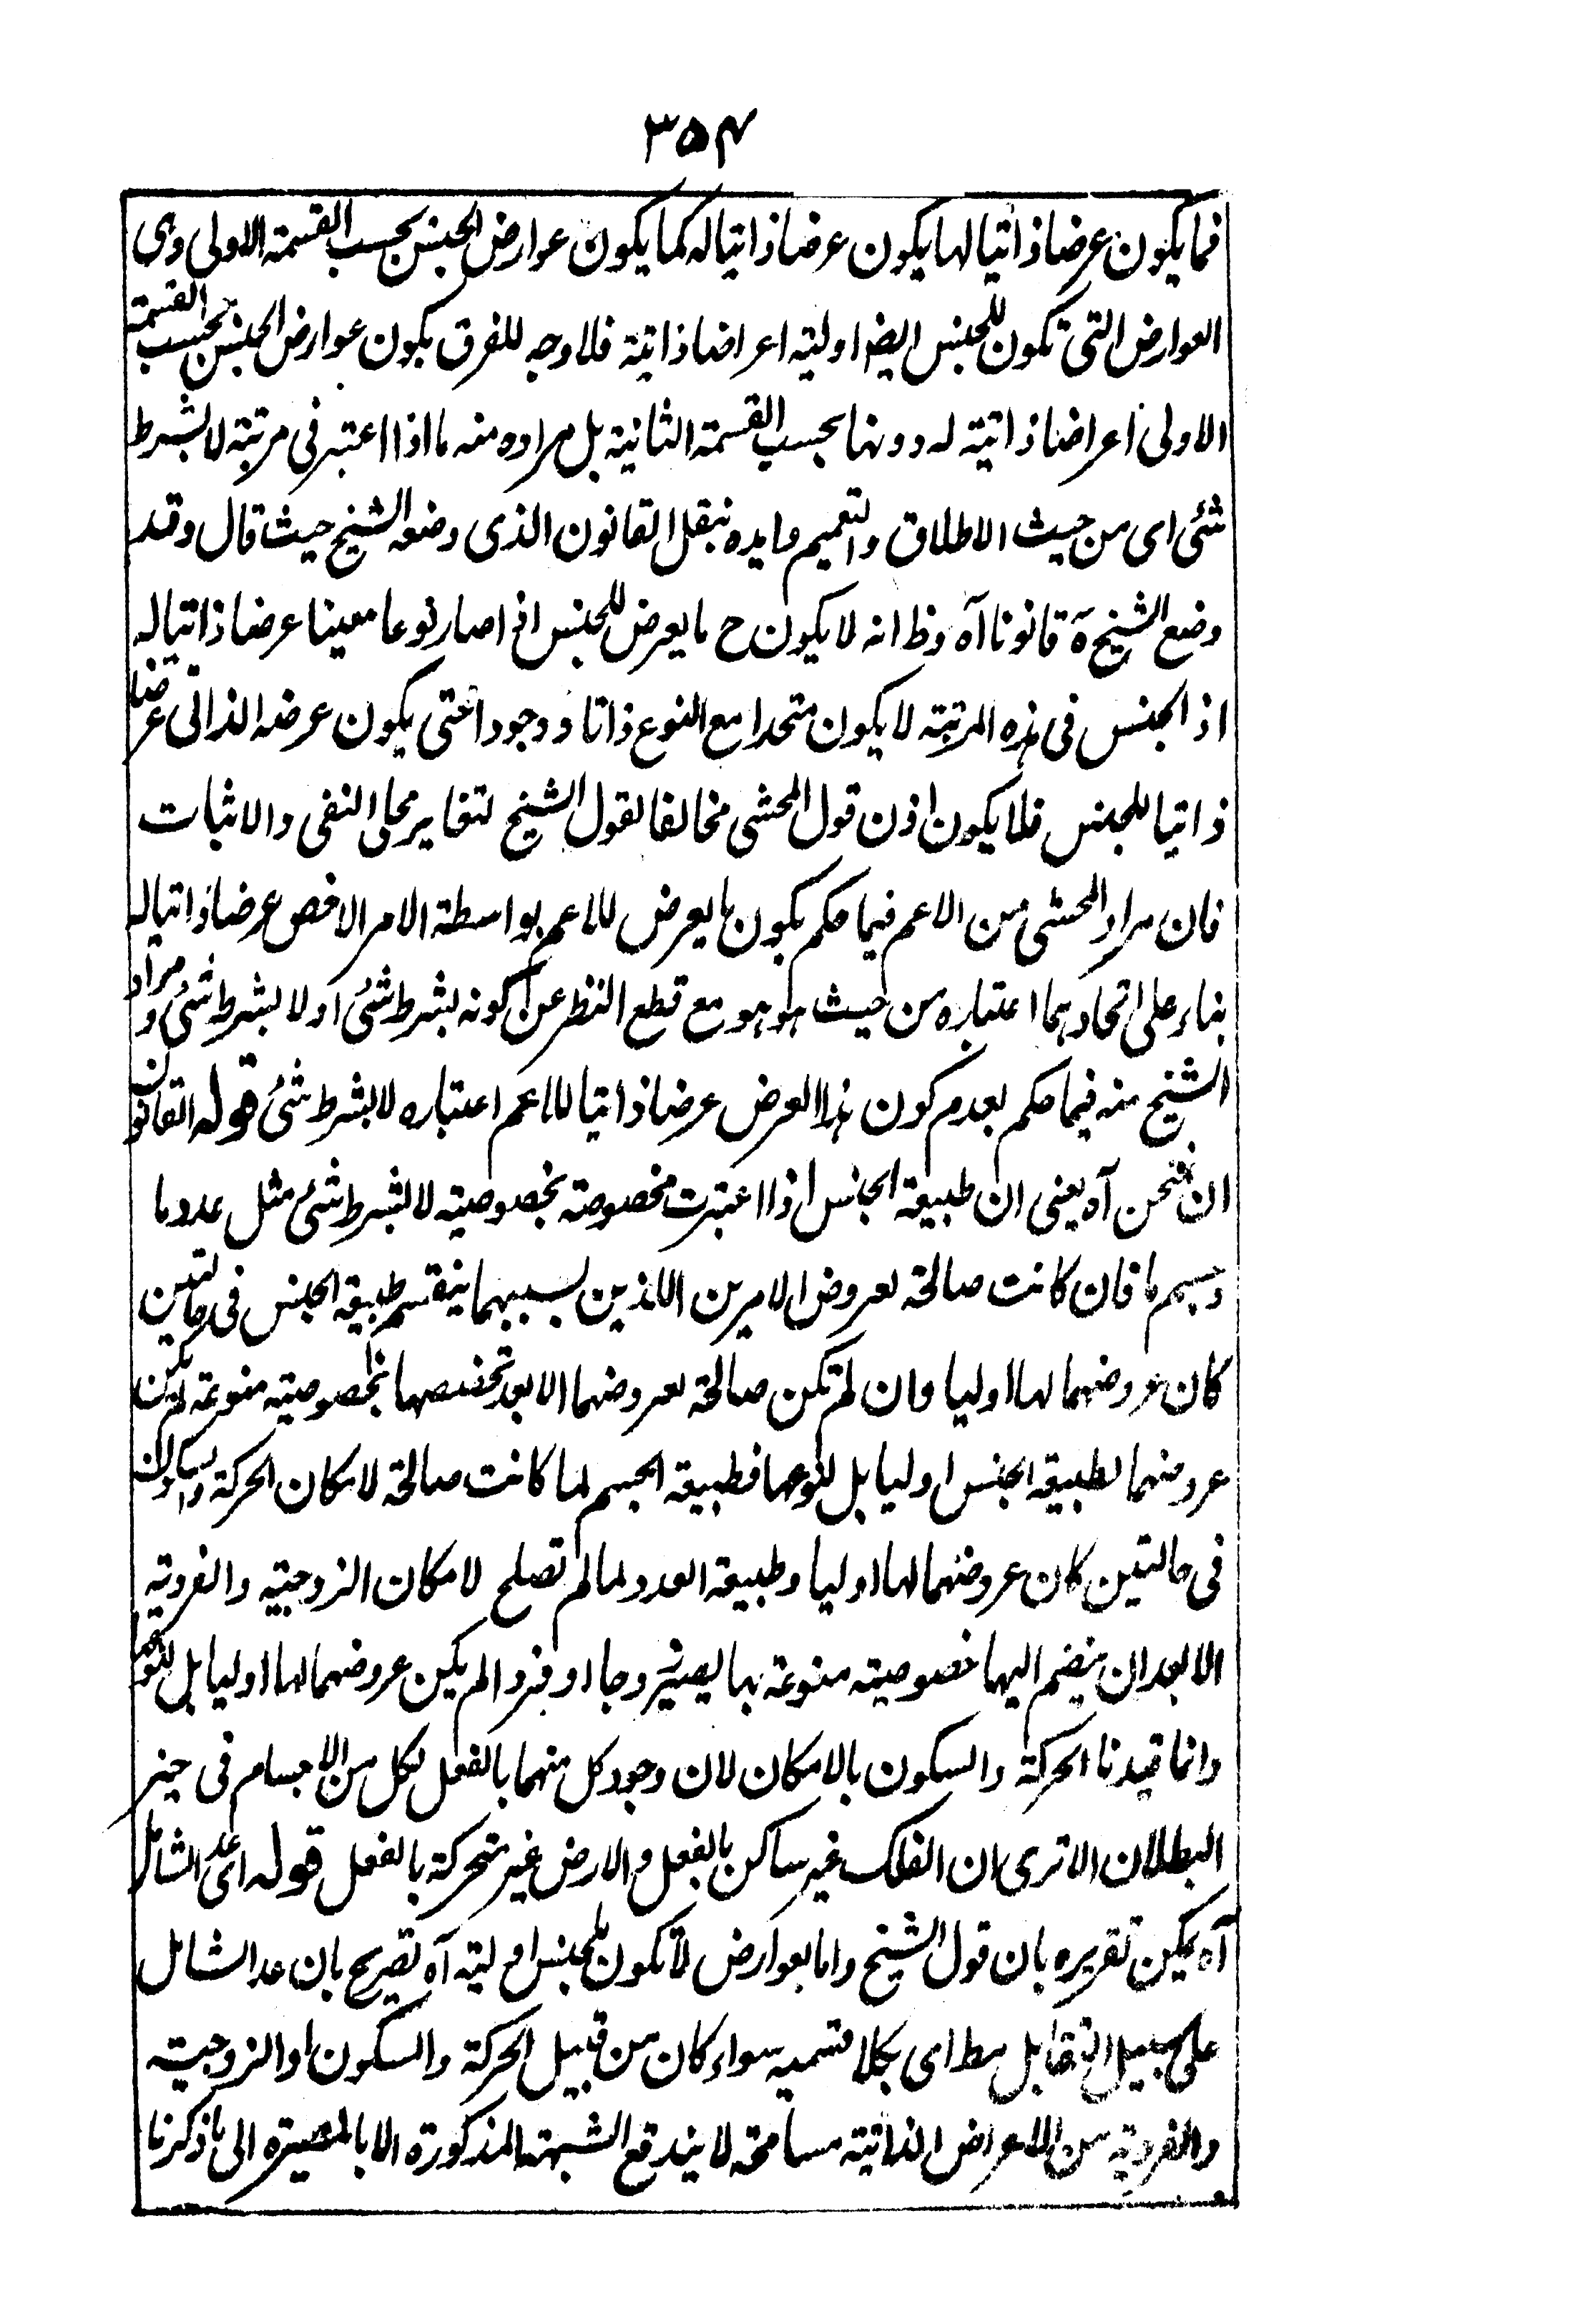 ۳۵۴
فما يكون عرضا ذاتيا لها يكون عرضا ذاتيا له كما يكون عوارض الجنس بحسب القسمة الاولى وهى
العوارض التى تكون للجنس ايضا اولية اعراضا ذاتية فلا وجه للفرق بكون عوارض الجنس بحسب القسمة
الاولى اعراضا ذاتية له دونها بحسب القسمة الثانية بل مراده منه ما اذا اعتبر فى مرتبة لا بشرط
شئ اى من حيث الاطلاق والتعميم وايده بنقل القانون الذى وضعه الشيخ حيث قال وقد
وضع الشيخ ة قانونا آه وظ انه لا يكون ح ما يعرض للجنس اذا صار نوعا معينا عرضا ذاتيا له
اذ الجنس فى هذه المرتبة لا يكون متحدا مع النوع ذاتا ووجودا حتى يكون عرضه الذاتى عرضا
ذاتيا للجنس فلا يكون اذن قول المحشى مخالفا لقول الشيخ لتغاير محلى النفى والاثبات
فان مراد المحشى من الاعم فيما حكم بكون ما يعرض للاعم بواسطة الامر الاخص عرضا ذاتيا له
بناء على اتحادهما اعتباره من حيث هو هو مع قطع النظر عن كونه بشرط شئ او لا بشرط شئ ومراد
الشيخ منه فيما حكم بعدم كون هذا العرض عرضا ذاتيا للاعم اعتباره لا بشرط شئ قوله القانون
ان نمتحن آه يعنى ان طبيعة الجنس اذا اعتبرت مخصوصة بخصوصية لا بشرط شئ مثل عدد ما
وجسم ما فان كانت صالحة لعروض الامرين اللذين بسببهما ينقسم طبيعة الجنس فى حالتين
كان عروضهما لها اوليا وان لم تكن صالحة لعروضهما الا بعد تخصصها بخصوصية منوعة لم يكن
عروضهما لطبيعة الجنس اوليا بل لنوعها فطبيعة الجسم لما كانت صالحة لامكان الحركة والسكون
فى حالتين كان عروضهما لها اوليا وطبيعة العدد لما لم تصلح لامكان الزوجية والفردية
الا بعد ان ينضم اليها خصوصية منوعة بها يصير زوجا او فردا لم يكن عروضهما لها اوليا بل لنوعها
وانما قيدنا الحركة والسكون بالامكان لان وجود كل منهما بالفعل لكل من الاجسام فى حيز
البطلان الا ترى ان الفلك غير ساكن بالفعل والارض غير متحركة بالفعل قوله اى عد الشامل
آه يمكن تقريره بان قول الشيخ واما بعوارض لا تكون للجنس اولية آه تصريح بان عد الشامل
على سبيل التقابل مط اى بكلا قسميه سواء كان من قبيل الحركة والسكون او الزوجية
والفردية من الاعراض الذاتية مسامحة لا يندفع الشبهة المذكورة الا بالمصيرة الى ما ذكرنا